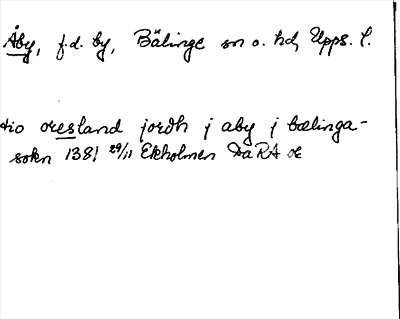 Åby, f.d. by, Bälinge sn o. hd, Upps. l.
tio oresland jordh j aby j bælinga-
sokn 1381 29/11 Ekholmen DaRA or